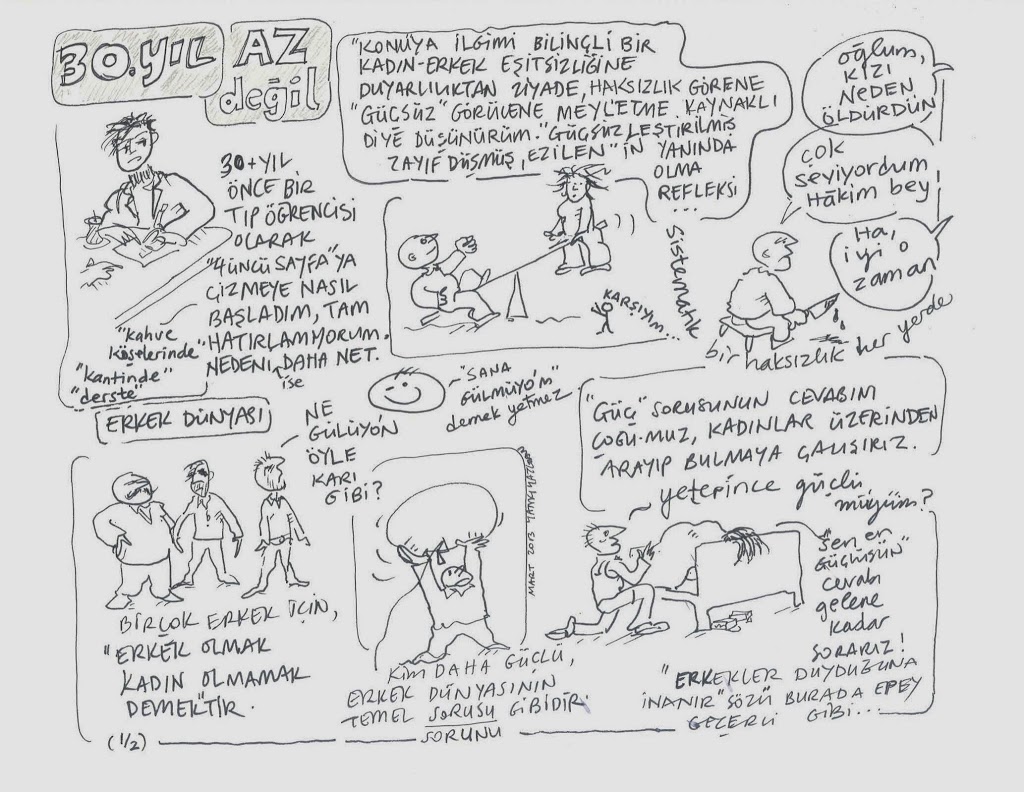 30.YIL AZ
değil
"KONUYA İLGİMİ BİLİNÇLİ BİR
KADIN-ERKEK EŞİTSİZLİĞİNE
DUYARLILIKTAN ZİYADE, HAKSIZLIK GÖRENE
"GÜÇSÜZ" GÖRÜLENE MEYLETME KAYNAKLI
DİYE DÜŞÜNÜRÜM." GÜÇSÜZLEŞTİRİLMİŞ
ZAYIF DÜŞMÜŞ, EZİLEN"İN YANINDA
OLMA
REFLEKSİ
...
oğlum,
KIZI
NEDEN
ÖLDÜRDÜN
çok
seviyordum
Hâkim bey
Ha,
iyi o
zaman
30+YIL
ÖNCE BİR
TIP ÖĞRENCİSİ
OLARAK
"4ÜNCÜ SAYFA"YA
ÇİZMEYE NASIL
BAŞLADIM, TAM
HATIRLAMIYORUM.
NEDENİ DAHA NET.
ise
"kahve
köşelerinde"
"kantinde"
"derste"
KARŞIYIM...
Sistematik
bir haksızlık her yerde
ERKEK DÜNYASI
NE
GÜLÜYO'N
ÖYLE
KARI
GİBİ?
"SANA
GÜLMÜYO'M"
demek yetmez
"GÜÇ" SORUSUNUN CEVABINI
ÇOĞU-MUZ, KADINLAR ÜZERİNDEN
ARAYIP BULMAYA ÇALIŞIRIZ.
yeterince güçlü
müyüm?
"Sen en
GÜÇLÜSÜN"
cevabı
gelene
kadar
SORARIZ!
BİRÇOK ERKEK İÇİN,
"ERKEK OLMAK
KADIN OLMAMAK
DEMEK"TİR.
MART 2013
KİM DAHA GÜÇLÜ,
ERKEK DÜNYASININ
TEMEL SORUSU GİBİDİR.
SORUNU
"ERKEKLER DUYDUĞUNA
İNANIR" SÖZÜ BURADA EPEY
GEÇERLİ GİBİ...
(1/2)